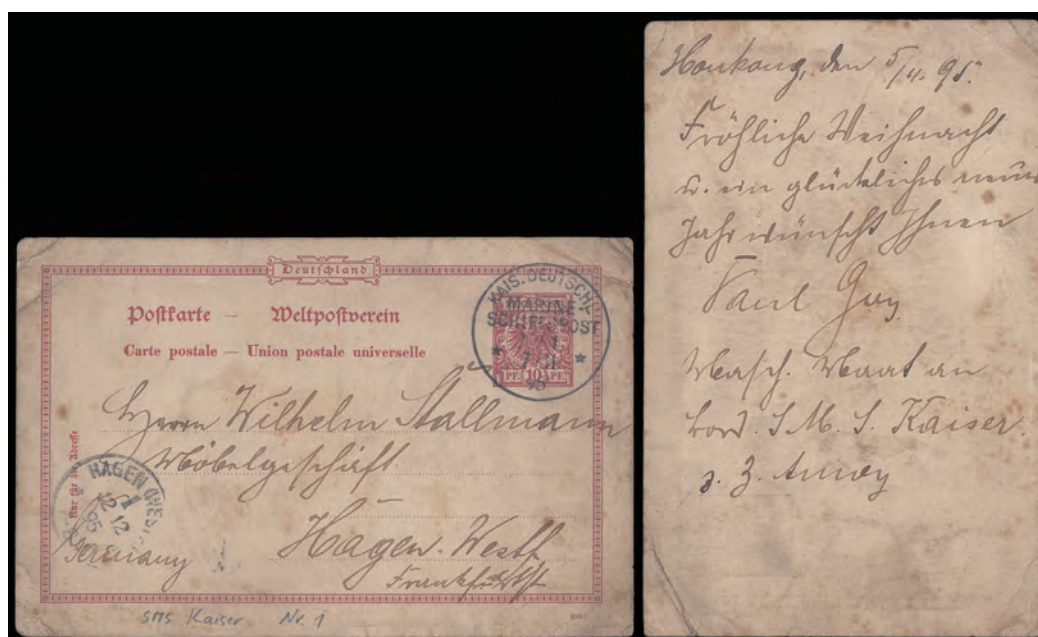 Deutschland
Postkarte — Weltpostverein
Carte postale — Union postale universelle
KAIS. DEUTSCHE
MARINE-
SCHIFFSPOST
PF. 10 PF.
Herrn Wilhelm Stallmann
Möbelgeschäft
Hagen. Westf
Frankfurtst
Nur für die Adresse
HAGEN (WEST
1
12 12
95
Germany
SMS Kaiser Nr. 1
Honkong, den 5/11. 95.
Fröhliche Weihnacht
u. ein glückliches neues
Jahr wünscht Ihnen
Paul
Masch. Maat an
Bord. S. M. S. Kaiser.
z. Z. Amoy